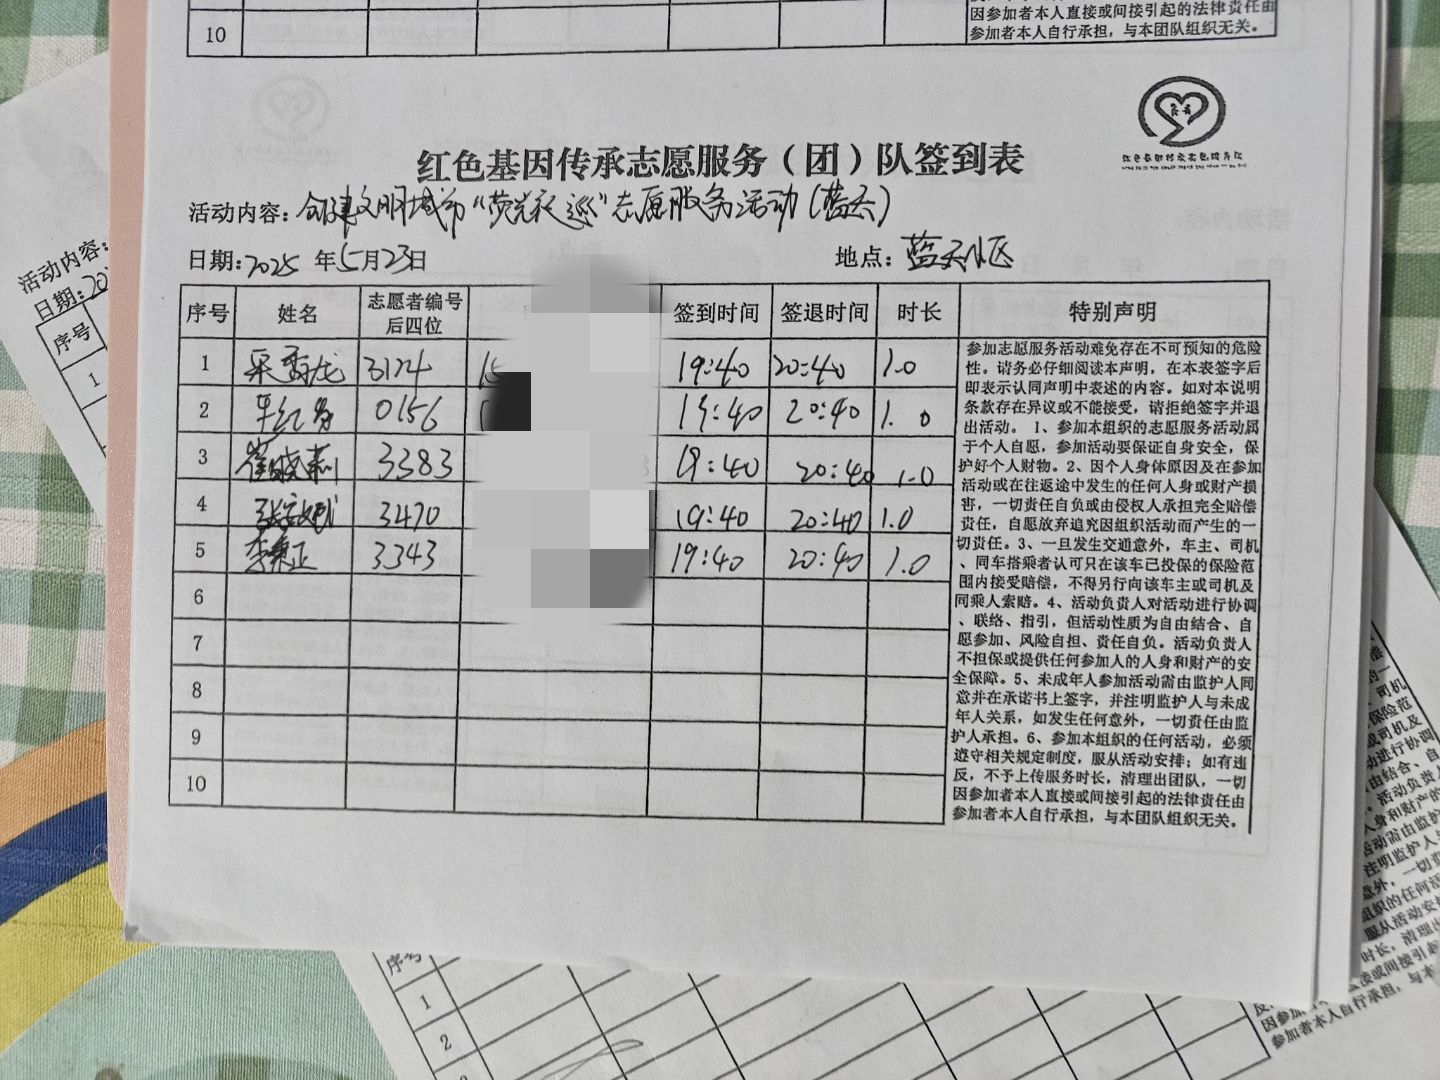 10
因参加者本人直接或间接引起的法律责任由
参加者本人自行承担，与本团队组织无关。
红色基因传承志愿服务（团）队签到表
活动内容：创建文明城市“荧光夜巡”志愿服务活动(蓝天)
日期：2025 年5月23日 地点：蓝天小区
序号 姓名 志愿者编号后四位 签到时间 签退时间 时长 特别声明
1 3124 15 19:40 20:40 1.0
2 0156 1 19:40 20:40 1.0
3 崔晓莉 3383 19:40 20:40 1.0
4 3470 19:40 20:40 1.0
5 李秉正 3343 19:40 20:40 1.0
6
7
8
9
10
参加志愿服务活动难免存在不可预知的危险
性。请务必仔细阅读本声明，在本表签字后
即表示认同声明中表述的内容。如对本说明
条款存在异议或不能接受，请拒绝签字并退
出活动。 1、参加本组织的志愿服务活动属
于个人自愿，参加活动要保证自身安全，保
护好个人财物。2、因个人身体原因及在参加
活动或在往返途中发生的任何人身或财产损
害，一切责任自负或由侵权人承担完全赔偿
责任，自愿放弃追究因组织活动而产生的一
切责任。3、一旦发生交通意外，车主、司机
、同车搭乘者认可只在该车已投保的保险范
围内接受赔偿，不得另行向该车主或司机及
同乘人索赔。4、活动负责人对活动进行协调
、联络、指引，但活动性质为自由结合、自
愿参加、风险自担、责任自负。活动负责人
不担保或提供任何参加人的人身和财产的安
全保障。5、未成年人参加活动需由监护人同
意并在承诺书上签字，并注明监护人与未成
年人关系，如发生任何意外，一切责任由监
护人承担。6、参加本组织的任何活动，必须
遵守相关规定制度，服从活动安排；如有违
反，不予上传服务时长，清理出团队，一切
因参加者本人直接或间接引起的法律责任由
参加者本人自行承担，与本团队组织无关。
活动内容：
日期：20
序号
1
序号
1
2
因参加
参加者本人自行承担，与本